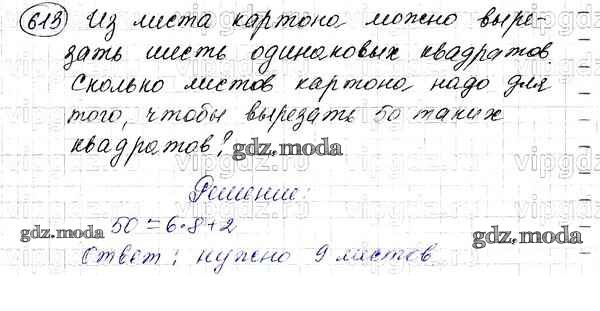 613 Из листа картона можно выре-
зать шесть одинаковых квадратов.
Сколько листов картона надо для
того, чтобы вырезать 50 таких
квадратов? gdz.moda
Решение:
50 = 6·8+2
gdz.moda gdz.moda
Ответ: нужно 9 листов